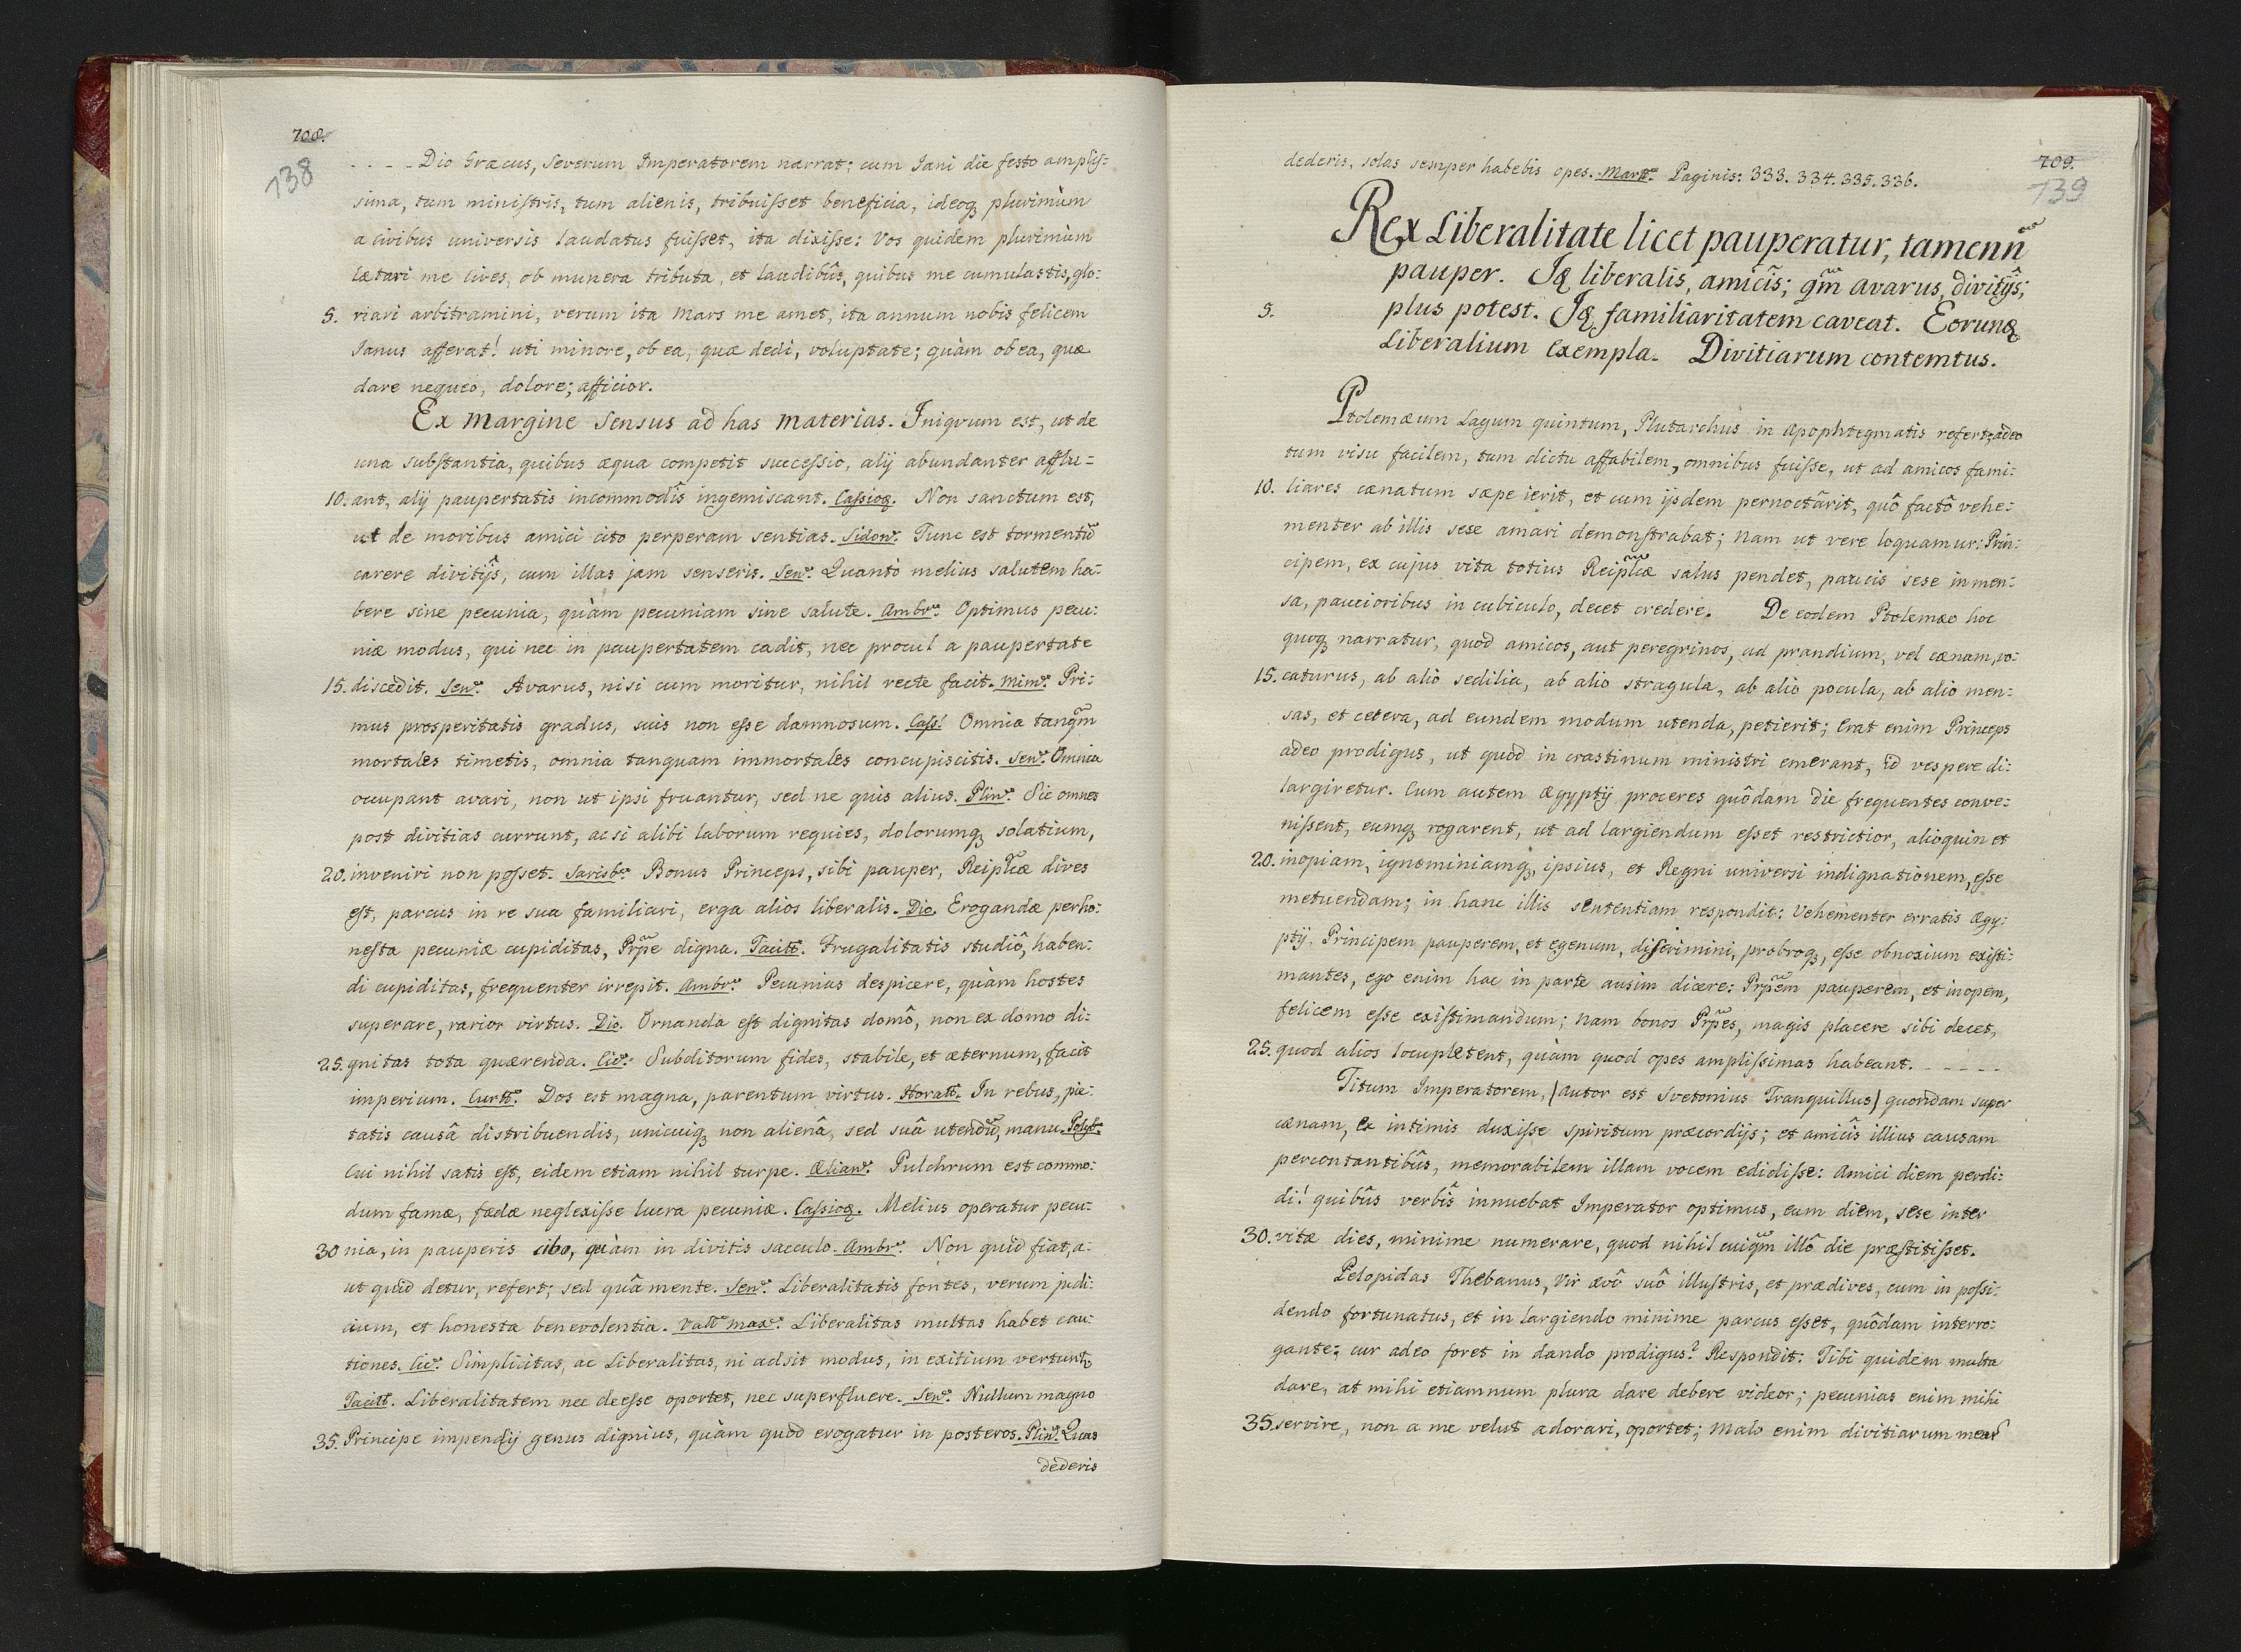 708.
138
- - - - Dio Græcus, Severum Imperatorem narrat; cum Jani die festo amplis=
sima, tum ministris, tum alienis, tribuisset beneficia, ideoq; plurimùm
a civibus universis laudatus fuisset, ita dixisse: Vos quidem plurimùm
lætari me Cives, ob munera tributa, et laudibûs, quibus me cumulastis, glo:
5. riari arbitramini, verum ita Mars me amet, ita annum nobis felicem
Janus afferat! uti minore, ob ea, quæ dedi, voluptate; quàm ob ea, quæ
dare nequeo, dolore; afficior.
Ex Margine Sensus ad has Materias. Iniqvum est, ut de
una substantia, quibus æqua competit successio, alij abundanter afflu=
10. ant, alij paupertatis incommodîs ingemiscant. Cassioq. Non sanctum est,
ut de moribus amici cito perperam sentias. Sidon⁹. Tunc est tormentũ
carere divitijs, cum illas jam senseris. Sen⁹. Quantò melius salutem ha:
bere sine pecunia, quàm pecuniam sine salute. Ambr⁹. Optimus pecu:
niæ modus, qui nec in paupertatem cadit, nec procul a paupertate
15. discedit. Sen⁹. Avarus, nisi cum moritur, nihil recte facit. Mim⁹. Pri:
mus prosperitatis gradus, suis non esse damnosum. Cass! Omnia tanqm̃
mortales timetis, omnia tanquam immortales concupiscitis. Sen⁹. Omnia
occupant avari, non ut ipsi fruantur, sed ne quis alius. Plin⁹. Sic omnes
post divitias currunt, ac si alibi laborum requies, dolorumq; solatium,
20. inveniri non posset. Sarisb⁹. Bonus Princeps, sibi pauper, Reipl̃cæ dives
est, parcus in re sua familiari, erga alios liberalis. Dio. Erogandæ perho:
nesta pecuniæ cupiditas, Prp̃e digna. Tacitt. Frugalitatis studiô, haben:
di cupiditas, frequenter irrepit. Ambr⁹. Pecunias despicere, quàm hostes
superare, rarior virtus. Dio. Ornanda est dignitas domô, non ex domo di:
25. gnitas tota quærenda. Cic⁹: Subditorum fides, stabile, et æternum, facit
imperium. Curtt⁹. Dos est magna, parentum virtus. Horatt⁹. In rebus, pie:
tatis causâ distribuendis, unicuiq; non alienâ, sed suâ utendũ, manu. Polyb⁹.
Cui nihil satis est, eidem etiam nihil turpe. Ælian⁹. Pulchrum est commo:
dum famæ, fædæ neglexisse lucra pecuniæ. Cassioq. Melius operatur pecu:
30 nia, in pauperis cibo, quàm in divitis sacculo. Ambr⁹. Non quid fiat, a:
ut quid detur, refert; sed quâ mente. Sen⁹. Liberalitatis fontes, verum judi:
cium, et honesta benevolentia. Vall⁹ Max⁹. Liberalitas multas habet cau:
tiones. Cic⁹. Simplicitas, ac Liberalitas, ni adsit modus, in exitium vertunt.
Tacitt. Liberalitatem nec deesse oportet, nec superfluere. Sen⁹. Nullum magno
35. Principe impendij genus dignius, quàm quod erogatur in posteros. Plin⁹. Quas
dederis
709.
139
dederis, solas semper habebis opes. Martt⁹. Paginis: 333. 334. 335. 336.
Rex Liberalitate licet pauperatur, tamen ñ
pauper. Iq; liberalis, amicîs; qm̃ avarus, divitijs;
5. plus potest. Iq; familiaritatem caveat. Eorunq;
Liberalium Exempla. Divitiarum contemtus.
Ptolemæum Lagum quintum, Plutarchus in Apophtegmatis refert; adeo
tum visu facilem, tum dictu affabilem, omnibus fuisse, ut ad amicos fami:
10. liares cænatum sæpe ierit, et cum ijsdem pernoctârit, quô factô vehe:
menter ab illis sese amari demonstrabat; Nam ut vere loquamur: Prin:
cipem, ex cujus vita totius Reipl̃cæ salus pendet, paucis sese in men:
sa, paucioribus in cubiculo, decet credere. De eodem Ptolemæo hoc
quoq; narratur, quod amicos, aut peregrinos, ad prandium, vel cænam, vo:
15. caturus, ab aliô sedilia, ab alio stragula, ab alio pocula, ab alio men:
sas, et cetera, ad eundem modum utenda, petierit; Erat enim Princeps
adeo prodigus, ut quod in crastinum ministri emerant, id vespere di:
largiretur. Cum autem Ægyptij proceres quôdam die frequentes conve:
nissent, eumq; rogarent, ut ad largiendum esset restrictior, alioquin et
20. inopiam, ignominiamq;, ipsius, et Regni universi indignationem, esse
metuendam; in hanc illis sententiam respondit: Vehementer erratis Ægy:
ptij, Principem pauperem, et egenum, discrimini, probroq;, esse obnoxium existi:
mantes, ego enim hac in parte ausim dicere: Prp̃em pauperem, et inopem,
felicem esse existimandum; Nam bonos Prp̃es, magis placere sibi decet,
25. quod alios locupletent, quàm quod opes amplissimas habeant. - - - - -
Titum Imperatorem, (Autor est Svetonius Tranquillus) quondam super
cænam, ex intimis duxisse spiritum præcordijs; et amicîs illius causam
percontantibûs, memorabilem illam vocem edidisse: Amici diem perdi:
di! quibûs verbîs innuebat Imperator optimus, eum diem, sese inter
30. vitæ dies, minime numerare, quod nihil cuiqm̃ illô die præstitisset.
Pelopidas Thebanus, Vir ævô suô illustris, et prædives, cum in possi:
dendo fortunatus, et in largiendo minime parcus esset, quôdam interro:
gante; cur adeo foret in dando prodigus? Respondit: Tibi quidem multa
dare, at mihi etiamnum plura dare debere videor; pecunias enim mihi
35. servire, non a me velut adorari, oportet; Malo enim divitiarum mearũ